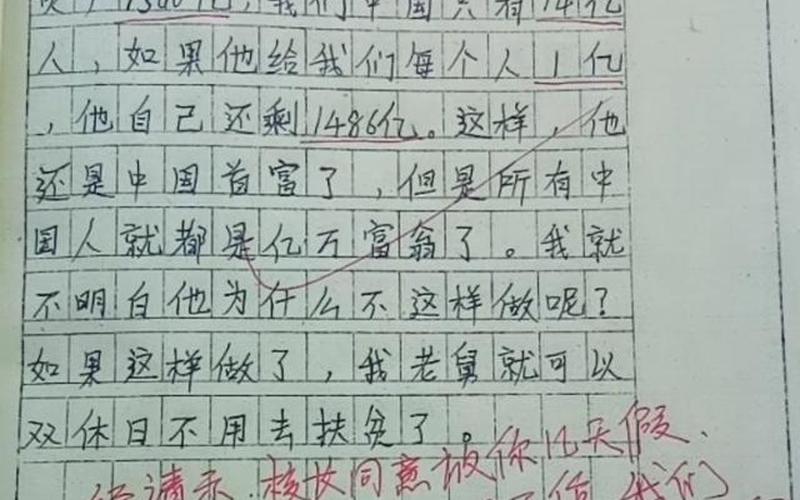 1500亿，我们中国只有14亿
人，如果他给我们每个人1亿
，他自己还剩1486亿。这样，他
还是中国首富了，但是所有中
国人就都是亿万富翁了。我就
不明白他为什么不这样做呢？
如果这样做了，我老舅就可以
双休日不用去扶贫了。
请示，校长同意放你几天假、
我们